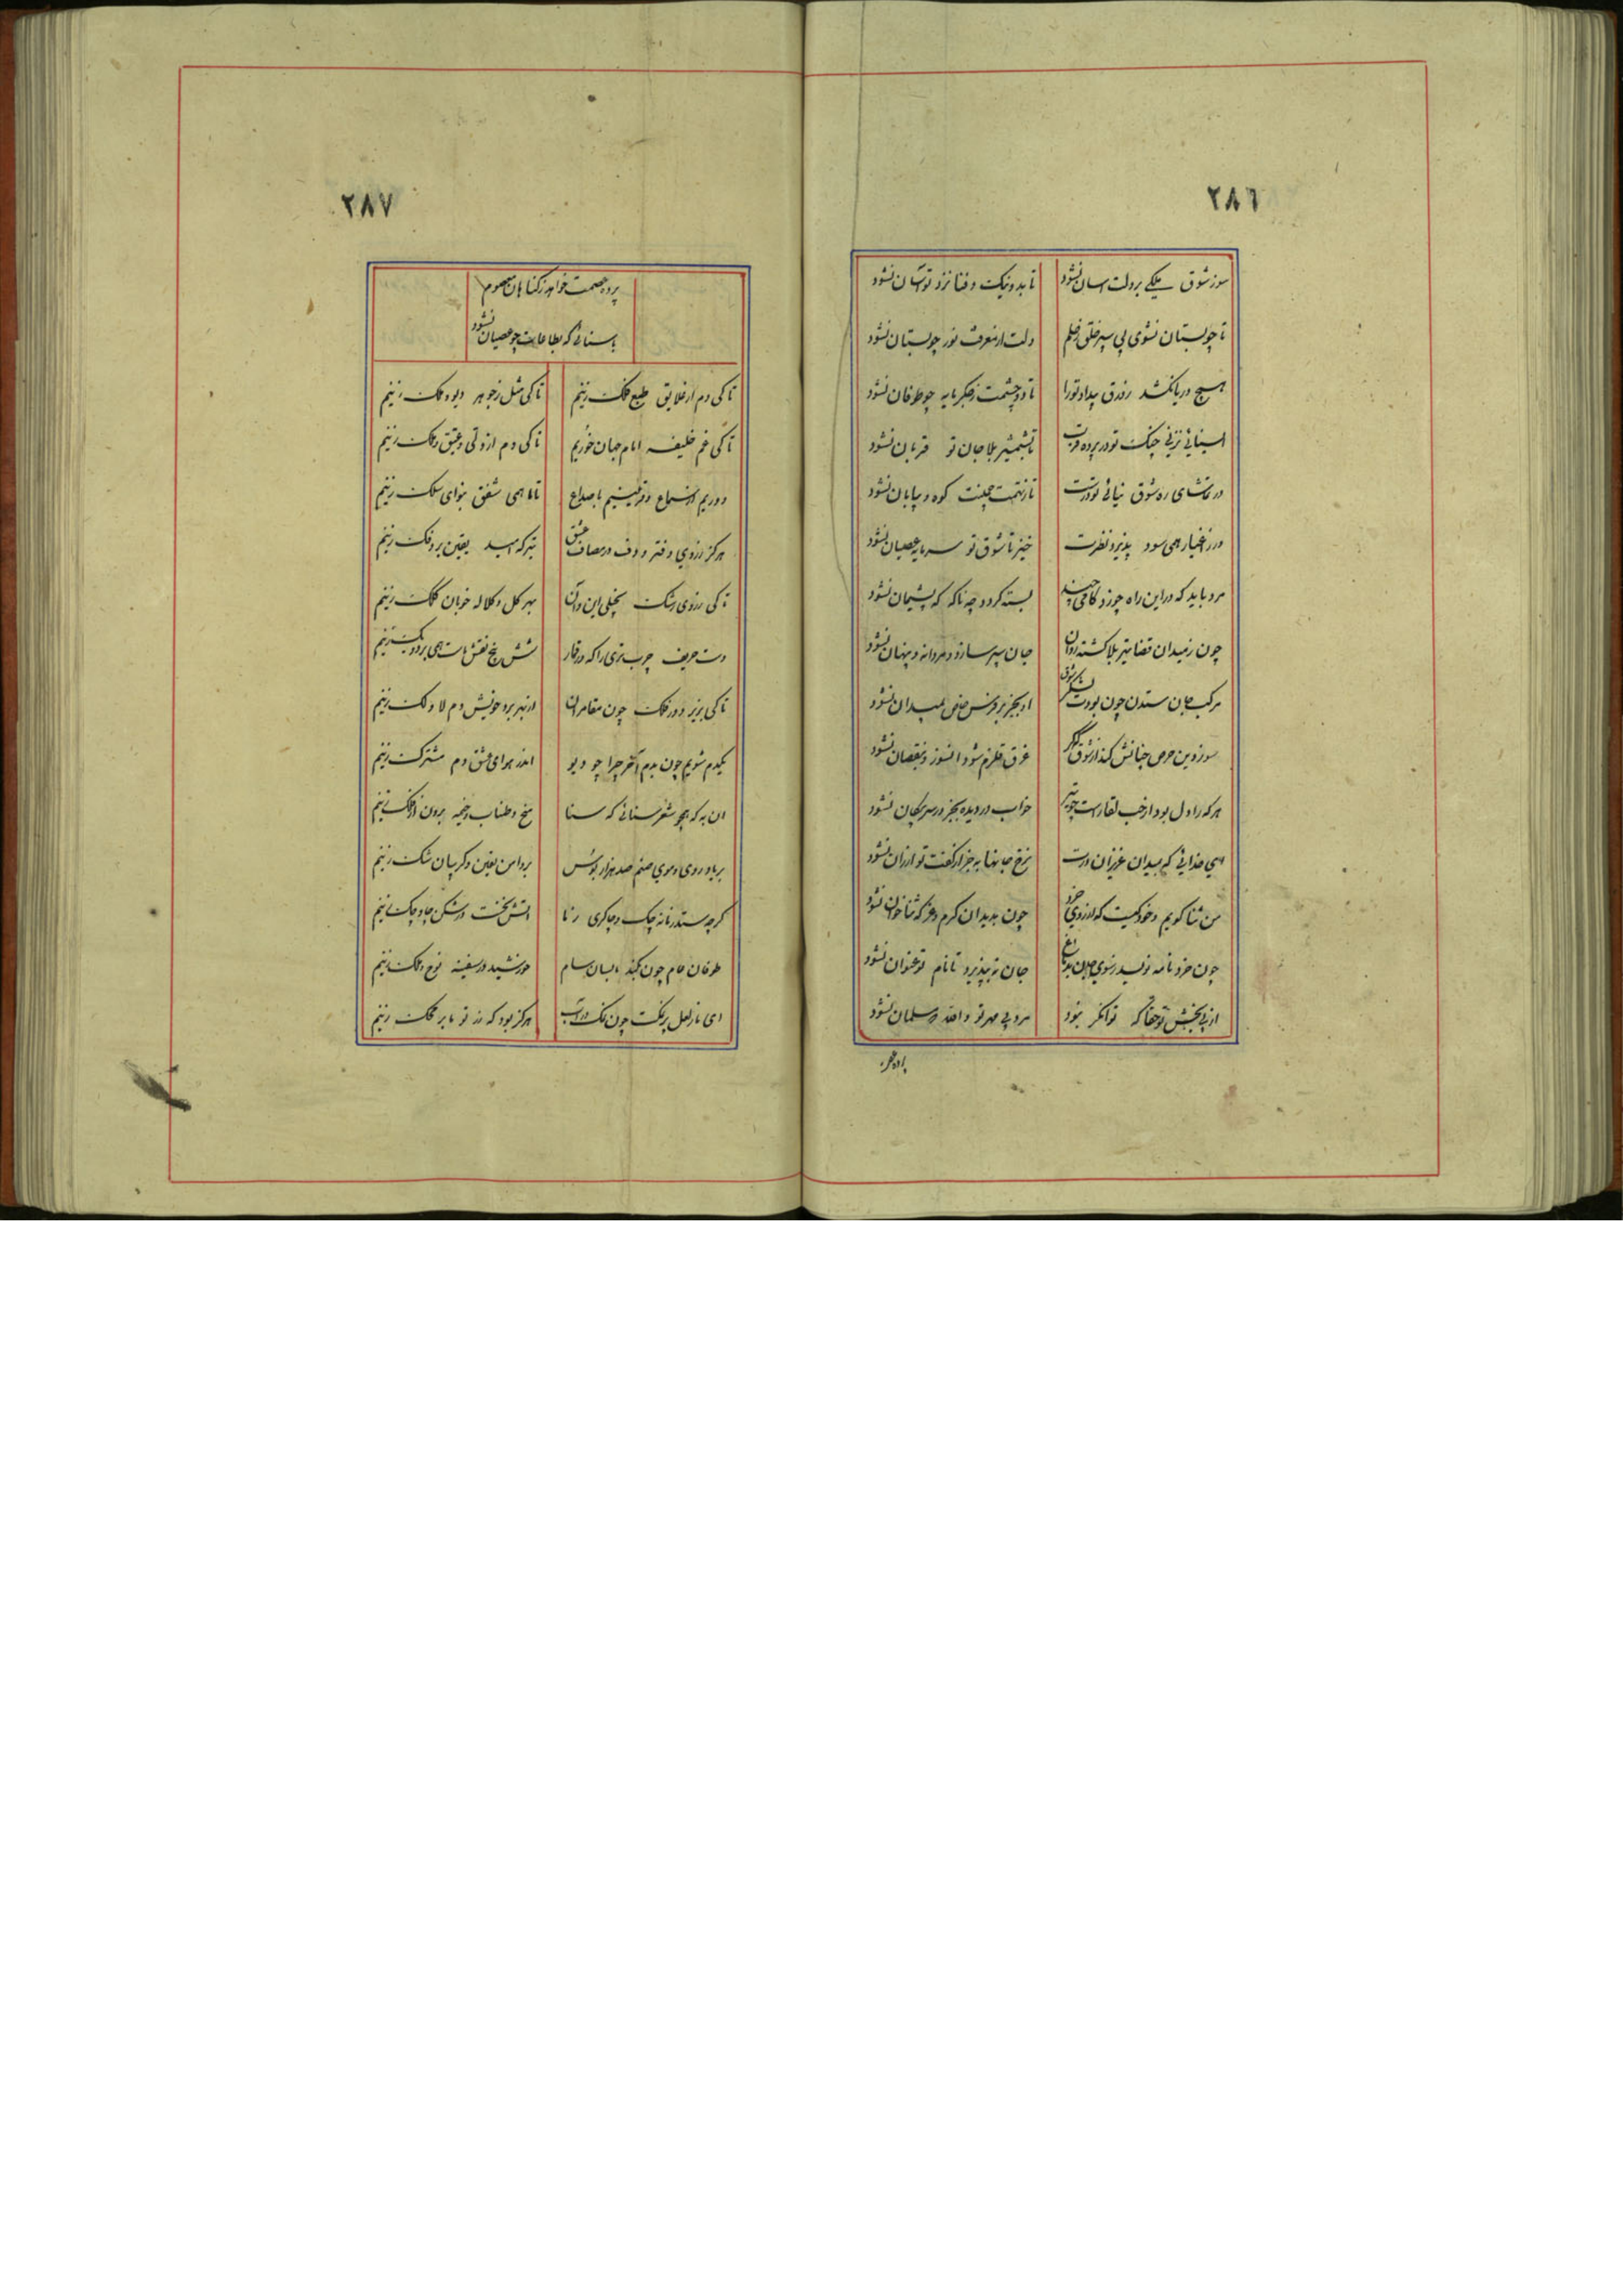 ٢٨٦
سوز شوق ملکی بر دلت اسان نشود تا بد و نیک و فنا نزد تو اسان نشود
تا چو بستان نشوی پی سپر خلق ز حلم دلت از معرفت نور چو بستان نشود
هیچ دریا نکشد زورق پندار تو را تا دو چشمت ز جگر مایه چو طوفان نشود
ای سنائی نزنی چنگ تو در پرده قرب تا بشمشیر بلا جان تو قربان نشود
در تماشای ره شوق نیائی تو درست تا ز نهمت چمنت کوه و بیابان نشود
ور ز اغیار همی سود پذیرد نظرت خیز تا شوق تو سرمایه عصیان نشود
مرد باید که در این راه چو زد کامی چند بسته کردد چه ناکه که پشیمان نشود
چون ز میدان قضا تیر بلا کشته روان جان سپر سازد و مردانه و پنهان نشود
مرکب جان ستدن چون بودت لشکر شوق او بجز بر فرس خاص بمیدان نشود
سوز دین حرص جنانش کند از شوق مکر غرق قلزم شود انسوز و بنقصان نشود
هر که را دل بود از شب لقا راست چو تیر خواب در دیده بجز در سر پیکان نشود
ای خدائی که بمیدان عزیزان درت نرخ جانها بجز از کفت تو ارزان نشود
من ثنا کویم و خود کیست که از روی خرد چون بدید ان کرم و عز که ثنا خوان نشود
چون خرد نامه نویسد ز سوی جان بدماغ جان نپذیرد تا نام تو عنوان نشود
از پی بخشش تو حقا که توانکر نبود مرد بی مهر تو والله مسلمان نشود
پرده
٢٨٧
پرده عصمت خواهد ز کناهان معصوم
با سنائی که بطاعات چو عصیان نشود
تا کی دم از علایق طبع فلک زنیم تا کی مثل ز جوهر دیو و ملک زنیم
تا کی غم خلیفه امام جهان خوریم تا کی دم از دلق و عتیق و فدک زنیم
دوریم از سماع و قرینیم با صداع تا ماهی شفق بنوای سمک زنیم
هرکز ز روی دفتر و دف در مصاف عشق تیر که امید یقین بر فلک زنیم
تا کی ز روی رشک تجلی این و آن بهر کل و کلاله خوبان کلک زنیم
دست حریف چرب تری را که در قمار شش پنج نقش مات همی بر دو یک زنیم
تا کی بزیر دور فلک چون مقامران از بهر برد خویش دم لا و لک زنیم
یکدم شویم چون بدم آخر چرا چو دیو اندر هوای عشق دم مشترک زنیم
ان به که همچو شعر سنائی که سنا میخ و طناب و خیمه برون از فلک زنیم
بر یاد روی و موی صنم صد هزار بوس بر دامن یقین و کریبان شک زنیم
کرچه ستد زمانه چک و چاکری ز ما اتش بخت در شکن چاه و چک زنیم
طوفان عام چون کند بسان سام خورشید در سفینه نوح و ملک زنیم
ای نازلعل پر نمکت چون نمک دراب هرکز بود که در تو ما بر محک زنیم